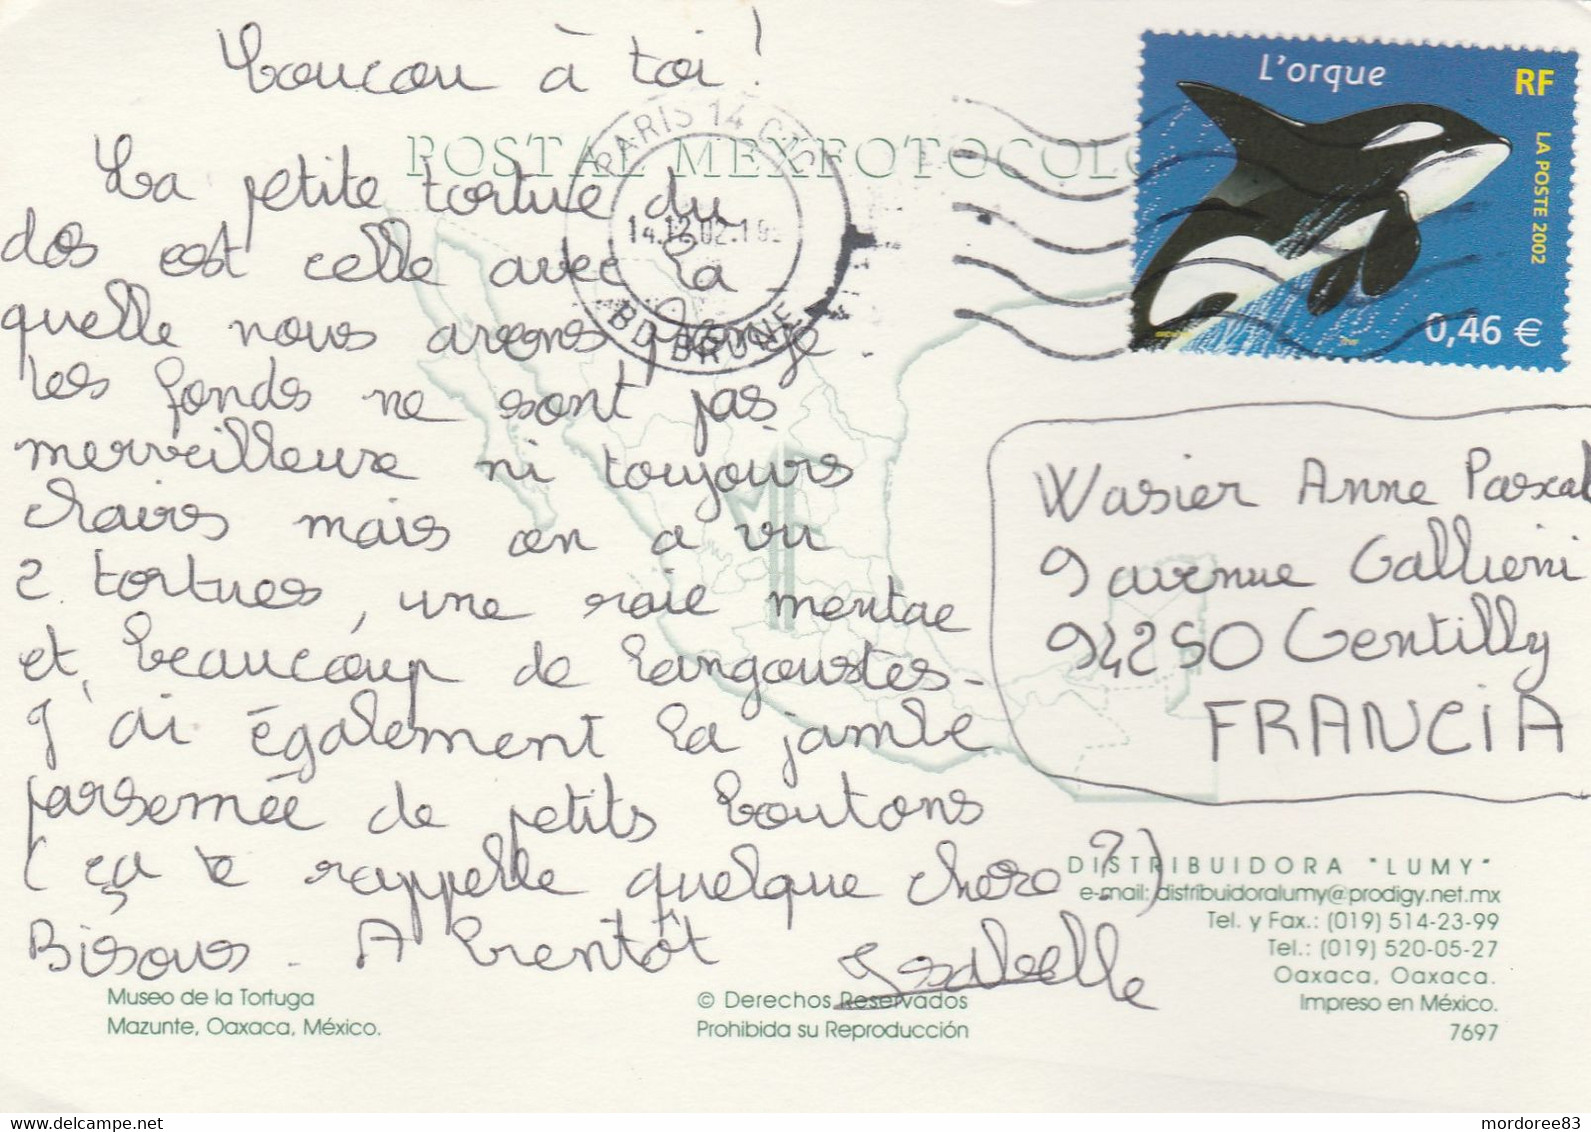 Coucou à toi !
POSTAL MEXFOTOCOLO
La petite tortue du
dos est celle avec la
quelle nous avons plongé.
Les fonds ne sont pas
merveilleux ni toujours
clairs mais on a vu
2 tortues, une raie mentae
et beaucoup de langoustes-
J'ai également la jambe
parsemée de petits boutons
(ça te rappelle quelque chose ?)
Bisous - A bientôt Isabelle
L'orque
RF
LA POSTE 2002
0,46 €
PARIS 14
14.12.02
BD BRUNE
Wasier Anne Pascal
9 avenue Gallieni
94250 Gentilly
FRANCIA
DISTRIBUIDORA "LUMY"
e-mail: distribuidoralumy@prodigy.net.mx
Tel. y Fax.: (019) 514-23-99
Tel.: (019) 520-05-27
Oaxaca, Oaxaca.
Impreso en México.
7697
Museo de la Tortuga
Mazunte, Oaxaca, México.
© Derechos Reservados
Prohibida su Reproducción
mordoree83